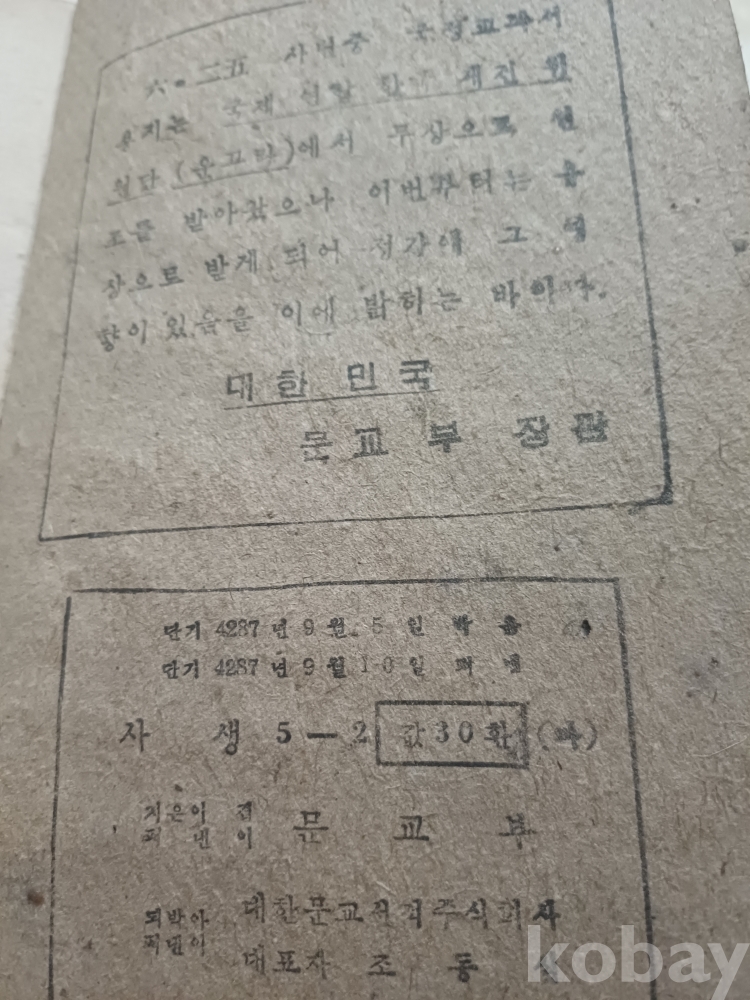 六•二五 사변중 국정교과서
용지는 국제 연합 한국 재건 위
원단 (운끄라)에서 무상으로 원
조를 받아왔으나 이번부터는 유
상으로 받게 되어 정가에 그 영
향이 있음을 이에 밝히는 바이다.
대한 민국
문교부 장관
단기 4287년 9월 5일 박음
단기 4287년 9월 10일 펴냄
자 생 5—2 값30환
지은이 겸
펴낸이 문교부
되박아
펴낸이 대한문교서적주식회사
대표자 조 동
kobay